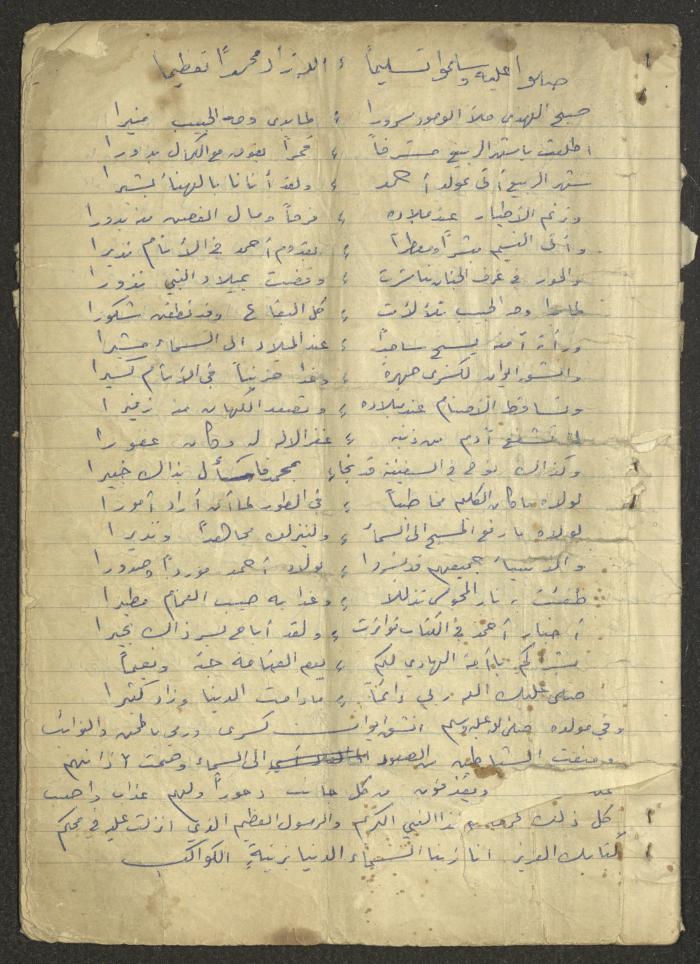 صلوا عليه وسلموا تسليماً ؛ الله زاد محمداً تعظيما
صبح الهدى ملأ الوجود سرورا ؛ لما بدى وجه الحبيب منيرا
اطلعت يا شهر الربيع مشرفاً ؛ قمراً يفوق مع الكمال بدورا
شهر الربيع أتى بمولد أحمد ؛ ولقد أتانا بالهناء بشيرا
وترنم الأطيار عند ميلاده ؛ فرحاً ومال الغصن منه بدورا
وأتى النسيم مبشراً ومعطراً ؛ بقدوم أحمد في الأنام نذيرا
والحور في غرف الجنان تباشرت ؛ وقضت بميلاد النبي نذورا
لما بدا وجه الحبيب تلألأت ؛ كل البقاع وقد نطقن شكورا
ورأته آمنة يسبح ساجداً ؛ عند الميلاد الى السماء مشيرا
وانشق ايوان لكسرى جهرة ؛ وغدا حزيناً في الأنام كسيرا
وتساقط الأصنام عند ميلاده ؛ وتصعد الكهان منه زفيرا
لما تشفع آدم من ذنبه ؛ غفر الاله له وكان غفورا
وكذاك نوح في السفينة قد نجا ؛ بمحمد فاسأل بذاك خبيرا
لولاه ما كان الكليم مخاطباً ؛ في الطور لما أن أراد أمورا
لولاه ما رفع المسيح الى السماء ؛ ولينزلن مجاهداً ونذيرا
والأنبياء جميعهم قد بشروا ؛ بولاد أحمد مورداً وصدورا
طفئت نار المجوس تذللا ؛ وغدا به صبب الغمام مطيرا
أخبار أحمد في الكتاب تواترت ؛ ولقد أباح لسر ذاك بحيرا
بشراكم يا أمة الهادي لكم ؛ يوم القيامة جنة ونعيما
صلى عليك الله ربي دائماً ؛ ما دامت الدنيا وزاد كثيرا
وفي مولده صلى الله عليه وسلم انشق ايوان كسرى ورمي
ومنعت الشياطين من الصعود الى السماء وصمت آذانهم
ويقذفون من كل جانب دحوراً ولهم عذاب واصب
كل ذلك لحرمة هذا النبي الكريم والرسول العظيم الذي انزلت عليه في محكم
كتابك العزيز انا زينا السماء الدنيا بزينةٍ الكواكب